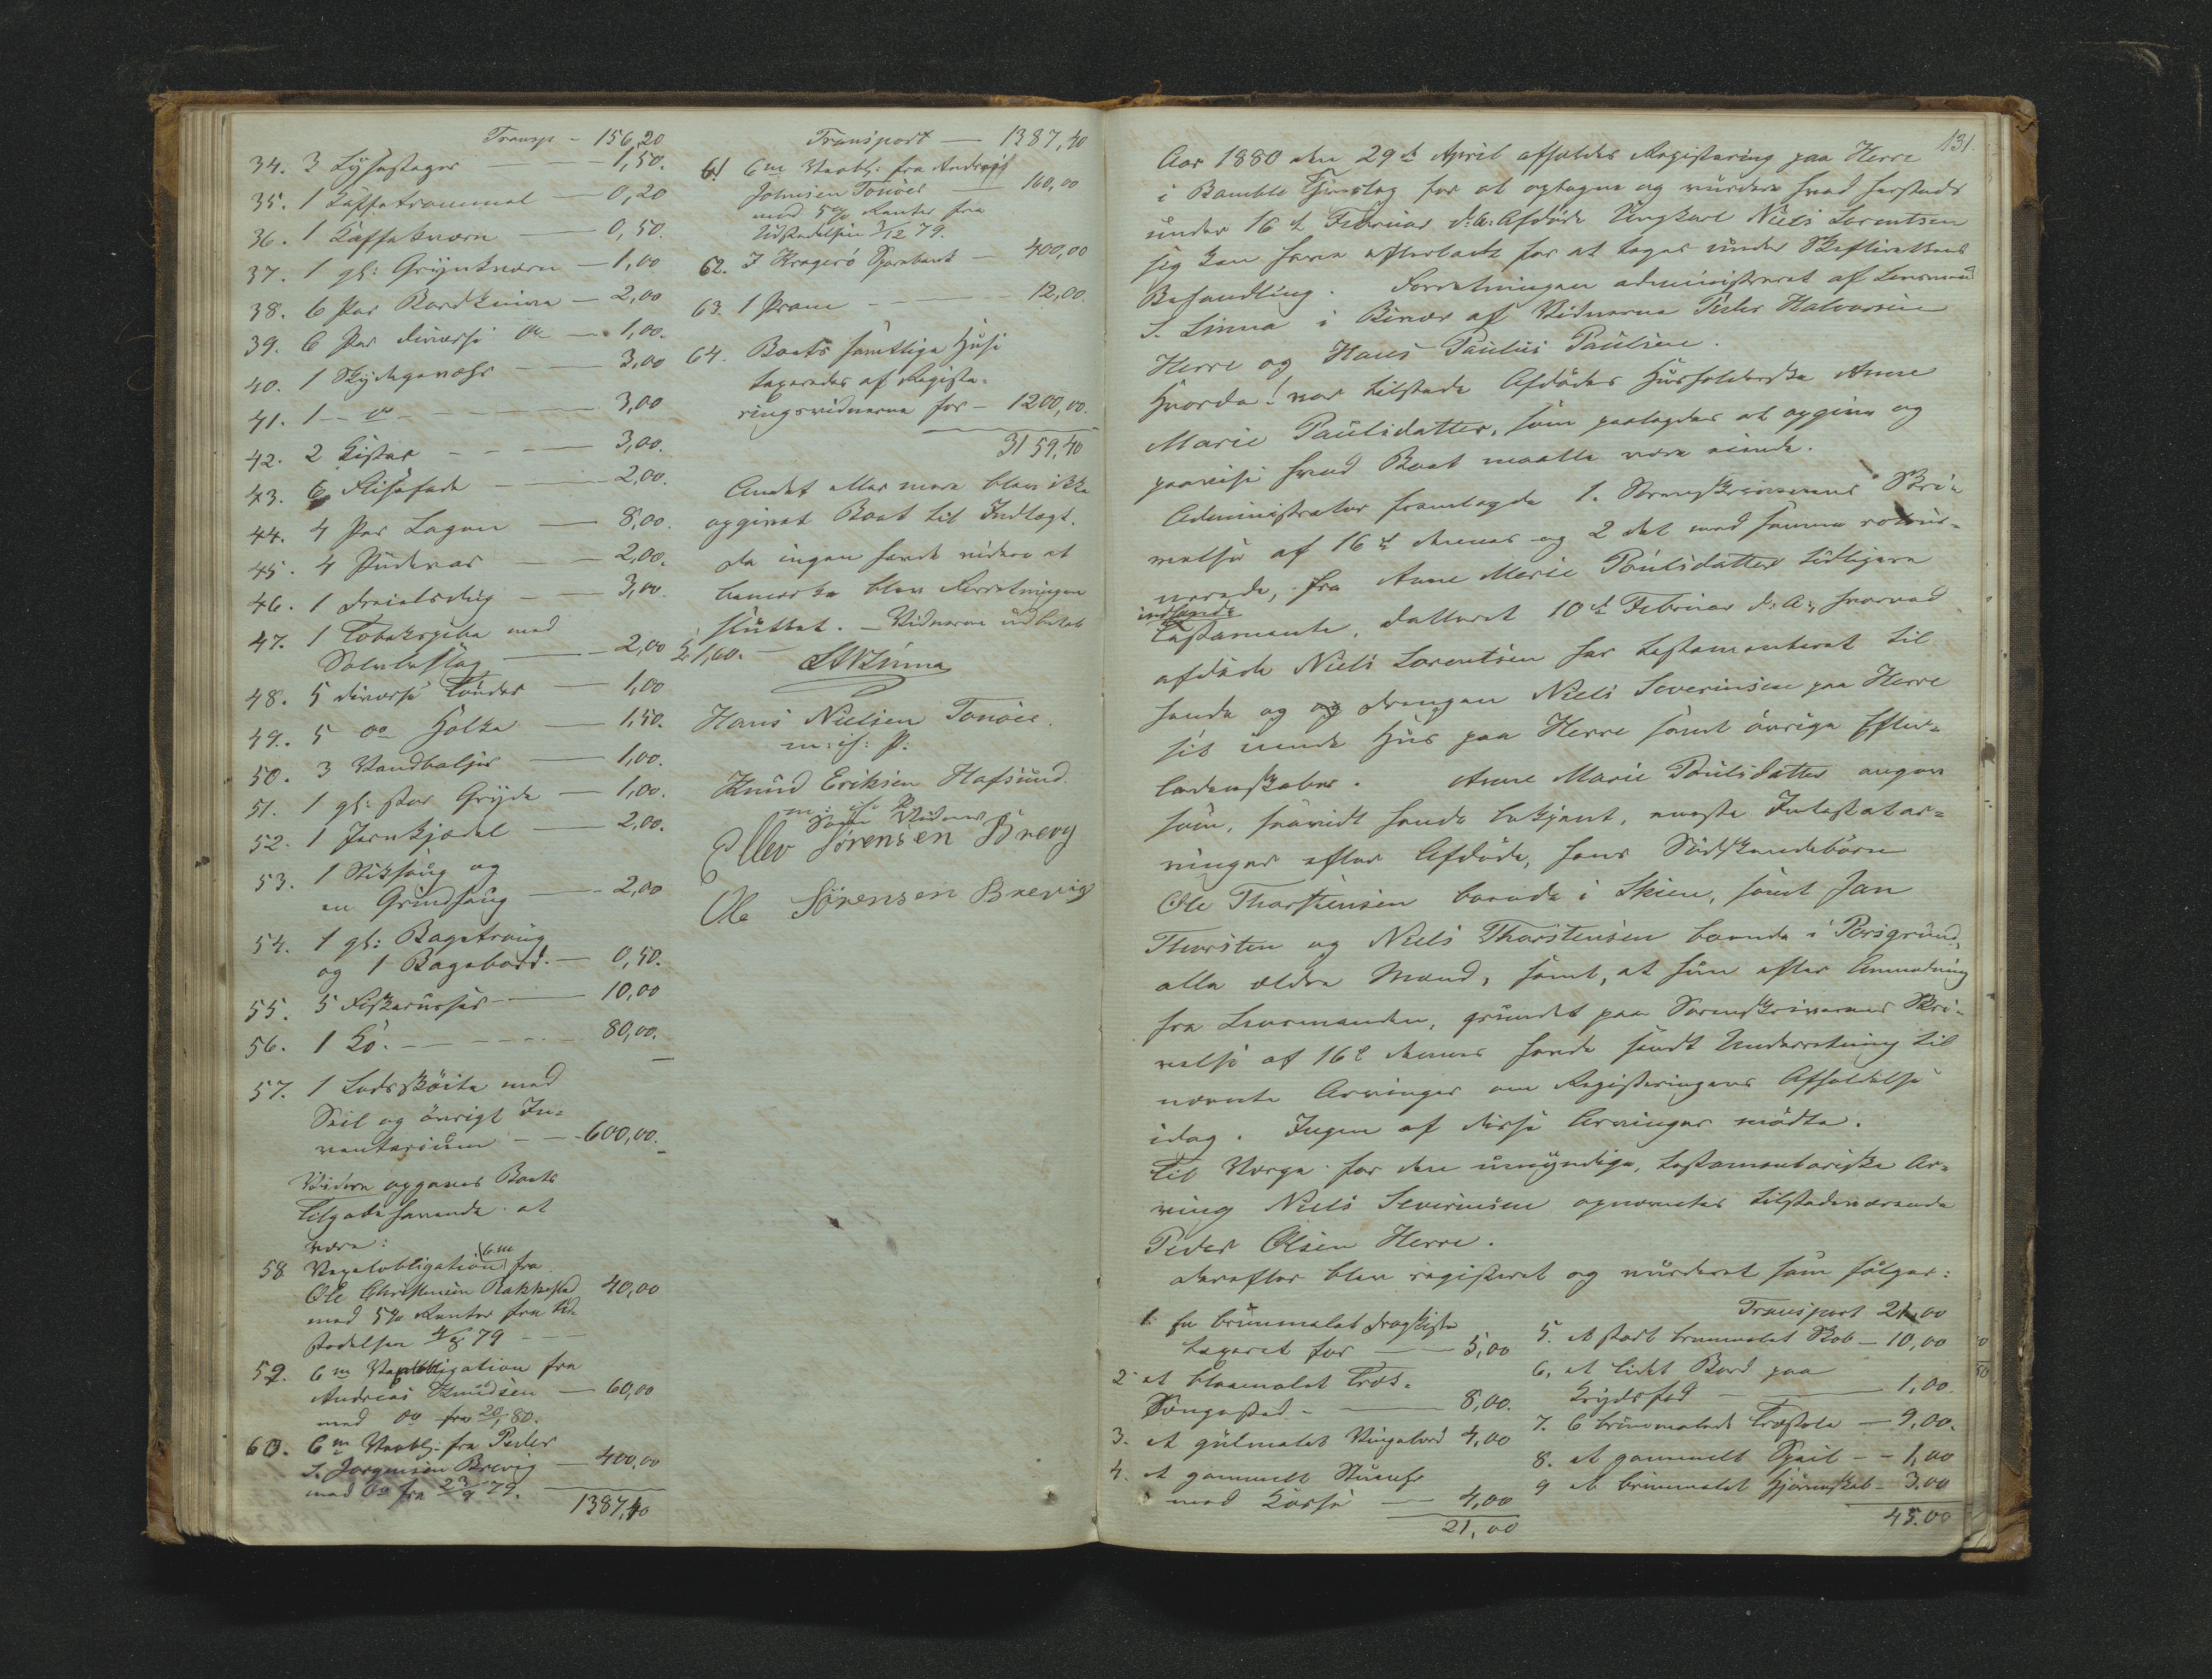 Transp - 156,20
34. 3 Lysestager - 1,50.
35. 1 Kaffetrommel - 0,20
36. 1 Kaffekværn - 0,50.
37. 1 gl: Grynkværn - 1,00
38. 6 Par Bordknive - 2,00
39. 6 Par diverse do - 1,00.
40. 1 Skydegevær - 3,00
41. 1 - do - 3,00
42. 2 Kister - 3,00.
43. 6 Flisefade - 2,00.
44. 4 Par Lagen - 8,00.
45. 4 Pudevar - 2,00.
46. 1 Dreielsdug - 3,00.
47. 1 Tobakspibe med
Sølvbeslag - 2,00
48. 5 diverse Tønder - 1,00
49. 5 do Holke - 1,50.
50. 3 Vandbaljer - 1,00.
51. 1 gl: stor Gryde - 1,00.
52. 1 Jernkjedel - 2,00.
53. 1 Stiksaug og
en Grindsaug - 2,00
54. 1 gl: Bagetraug
og 1 Bagebord. - 0,50.
55. 5 Fiskeruser - 10,00
56. 1 Ko. - 80,00.
57. 1 Lodsskøite med
Seil og øvrigt In-
ventarium - 600,00.
Videre opgaves Boets
Tilgodehavende at
være:
58 Vexelobligation 6m fra
Ole Christensen Rakkestad 40,00
med 5% Renter fra Ud-
stedelsen 4/8 79
59. 6m Vexelobligation fra
Andreas Knudsen - 60,00
med do fra 20/1 80.
60. 6m Vexobl: fra Peder
S. Jørgensen Brevig - 400,00
med do fra 23/9 79.
1387,40
Transport - 1387,40
61 6m Vexobl: fra Andreas
Johnsen Tonøes - 160,00
med 5% Renter fra
Udstedelsen 3/12 79.
62. I Kragerø Sparebank - 400,00
63. 1 Pram - 12,00.
64. Boets samtlige Huse
taxeredes af Registe-
ringsvidnerne for - 1200,00.
3159,40
Andet eller mere blev ikke
opgivet Boet til Indtægt.
Da ingen havde videre at
bemærke blev Forretningen
sluttet. - Vidnerne udbetalt
1,60. - S.N. Linna
Hans Nielsen Tonøes.
m: if: P:
Knud Eriksen Hafsund.
m: if: P.
Som Vidner
Ellev Sørensen Brevig
Ole Sørensen Brevig
131.
Aar 1880 den 29de April afholdtes Registering paa Herre
i Bamble Thinglag for at optegne og vurdere hvad herstede
under 16de Februar d: A: Afdøde Ungkarl Niels Lorentsen
sig kan have efterladt for at tages under Skifterettens
Behandling. Forretningen administreret af Lensmand
S. Linna i Biværelse af Vidnerne Peder Halvorsen
Herre og Hans Paulus Paulsen.
Hvorda! var tilstede Afdødes Husholderske Anne
Marie Paulsdatter, som paalagdes at opgive og
paavise hvad Boet maatte være eiende.
Administrator fremlagde 1. Sorenskriverens Skri-
velse af 16de dennes og 2 det med samme retour-
nerede, fra Anne Marie Poulsdatter tidligere
indsendte
Testamente, datteret 10de Februar d: A:, hvorved
afdøde Niels Lorentsen har testamenteret til
hende og og Drengen Niels Severinsen paa Herre
sit eiende Hus paa Herre samt øvrige Efter-
ladenskaber. Anne Marie Poulsdatter angav
som, saavidt hende bekjent, eneste Intestatar-
vinger efter Afdøde, hans Sødskendebørn
Ole Thorstensen boende i Skien, samt Jan
Thorsten og Niels Thorstensen boende i Porsgrund,
alle ældre Mænd, samt, at hun efter Anmodning
fra Lensmanden, grundet paa Sorenskriverens Skri-
velse af 16de dennes havde sendt Underretning til
nævnte Arvinger om Registeringens Afholdelse
idag. Ingen af disse Arvinger mødte.
Til Værge for den umyndige, testamentariske Ar-
ving Niels Severinsen opnævntes tilstedeværende
Peder Olsen Herre.
Derefter blev registeret og vurderet som følger:
1. En brunmalet Dragkiste
taxeret for - 5,00
2. et blaamalet Træ-
Sengested - 8,00.
3. et gulmalet Klapbord 4,00
4. et gammelt Stueuhr
med Kasse - 4,00
21,00
Transport 21,00
5. et stort brunmalet Skab - 10,00
6, et lidet Bord paa
Krydsfod - 1,00.
7. 6 brunmalede Træstole - 9,00.
8. et gammelt Speil - 1,00
9 et brunmalet Hjørneskab - 3,00
45.00